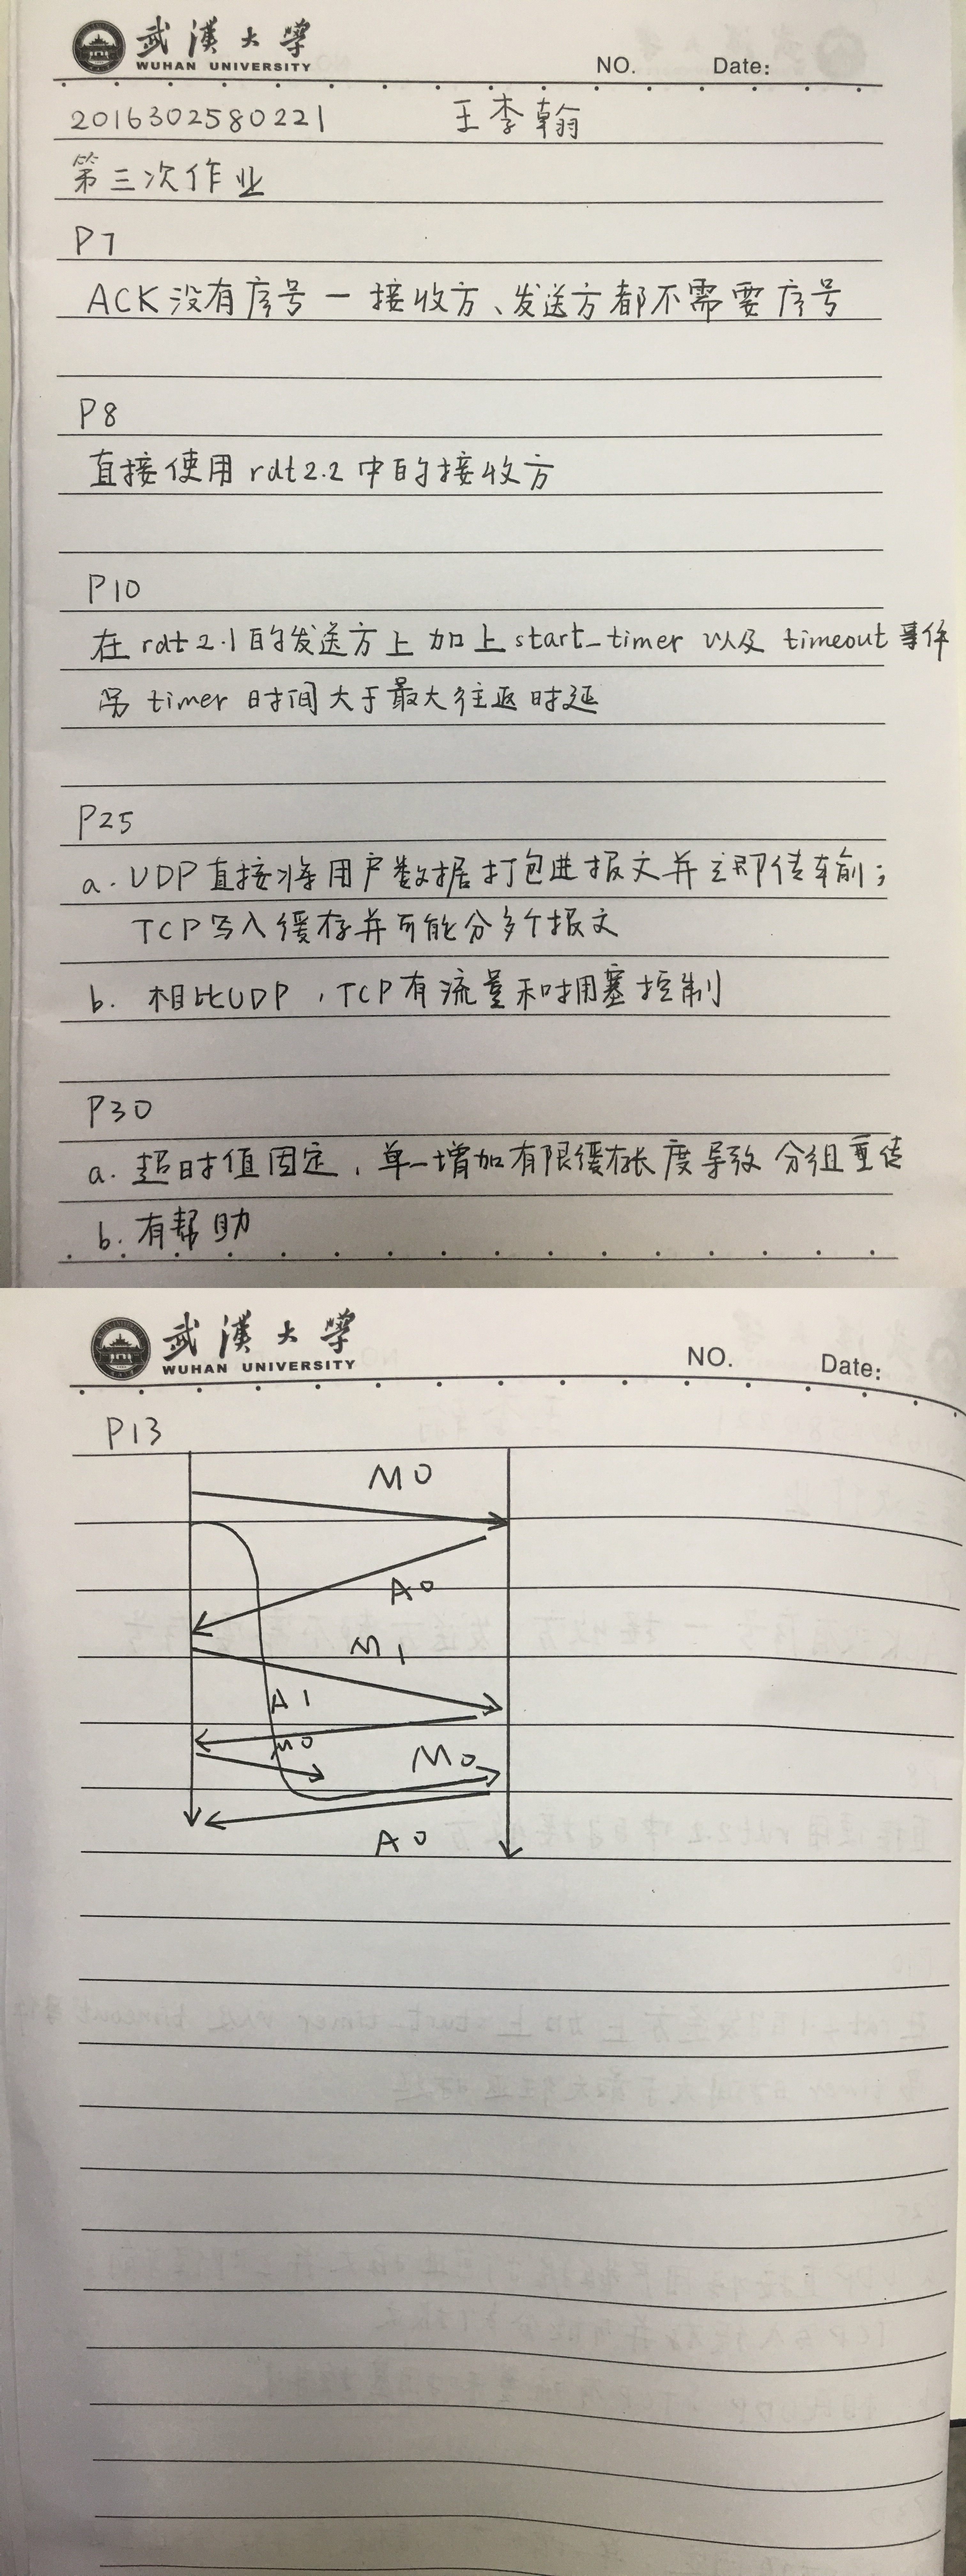 武漢大學
WUHAN UNIVERSITY
NO. Date:
2016302580221 王李翰
第三次作业
P7
ACK没有序号 — 接收方、发送方都不需要序号
P8
直接使用rdt2.2中的接收方
P10
在rdt2.1的发送方上加上start_timer 以及 timeout事件
另 timer 时间大于最大往返时延
P25
a. UDP直接将用户数据打包进报文并立即传输;
TCP写入缓存并可能分多个报文
b. 相比UDP,TCP有流量和拥塞控制
P30
a. 超时值固定,单一增加有限缓存长度导致分组重传
b. 有帮助
武漢大學
WUHAN UNIVERSITY
NO. Date:
P13
M0
A0
M1
A1
M0
M0
A0